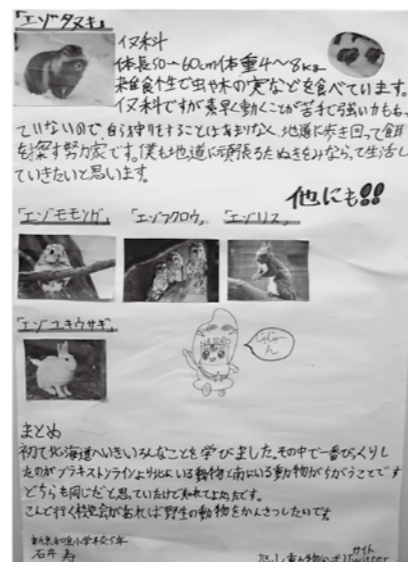 「エゾタヌキ」
イヌ科
体長50〜60cm体重4〜8kg
雑食性で虫や木の実などを食べています。
イヌ科ですが素早く動くことが苦手で強い力ももっ
ていないので、自ら狩りをすることはあまりなく、地道に歩き回って餌
を探す努力家です。僕も地道に頑張るたぬきをみならって生活し
ていきたいと思います。
他にも!!
「エゾモモンガ」 「エゾフクロウ」 「エゾリス」
「エゾユキウサギ」
じゃじゃーん
まとめ
初て北海道へいきいろんなことを学びました。その中で一番びっくりし
たのがブラキストンラインより北にいる動物と南にいる動物がちがうことです
どちらも同じだと思っていたけど知れてよかったです。
こんど行く機会があれば野生の動物をかんさつしたいです。
小学校5年
石井 寿
動物公式Twitter
サイト